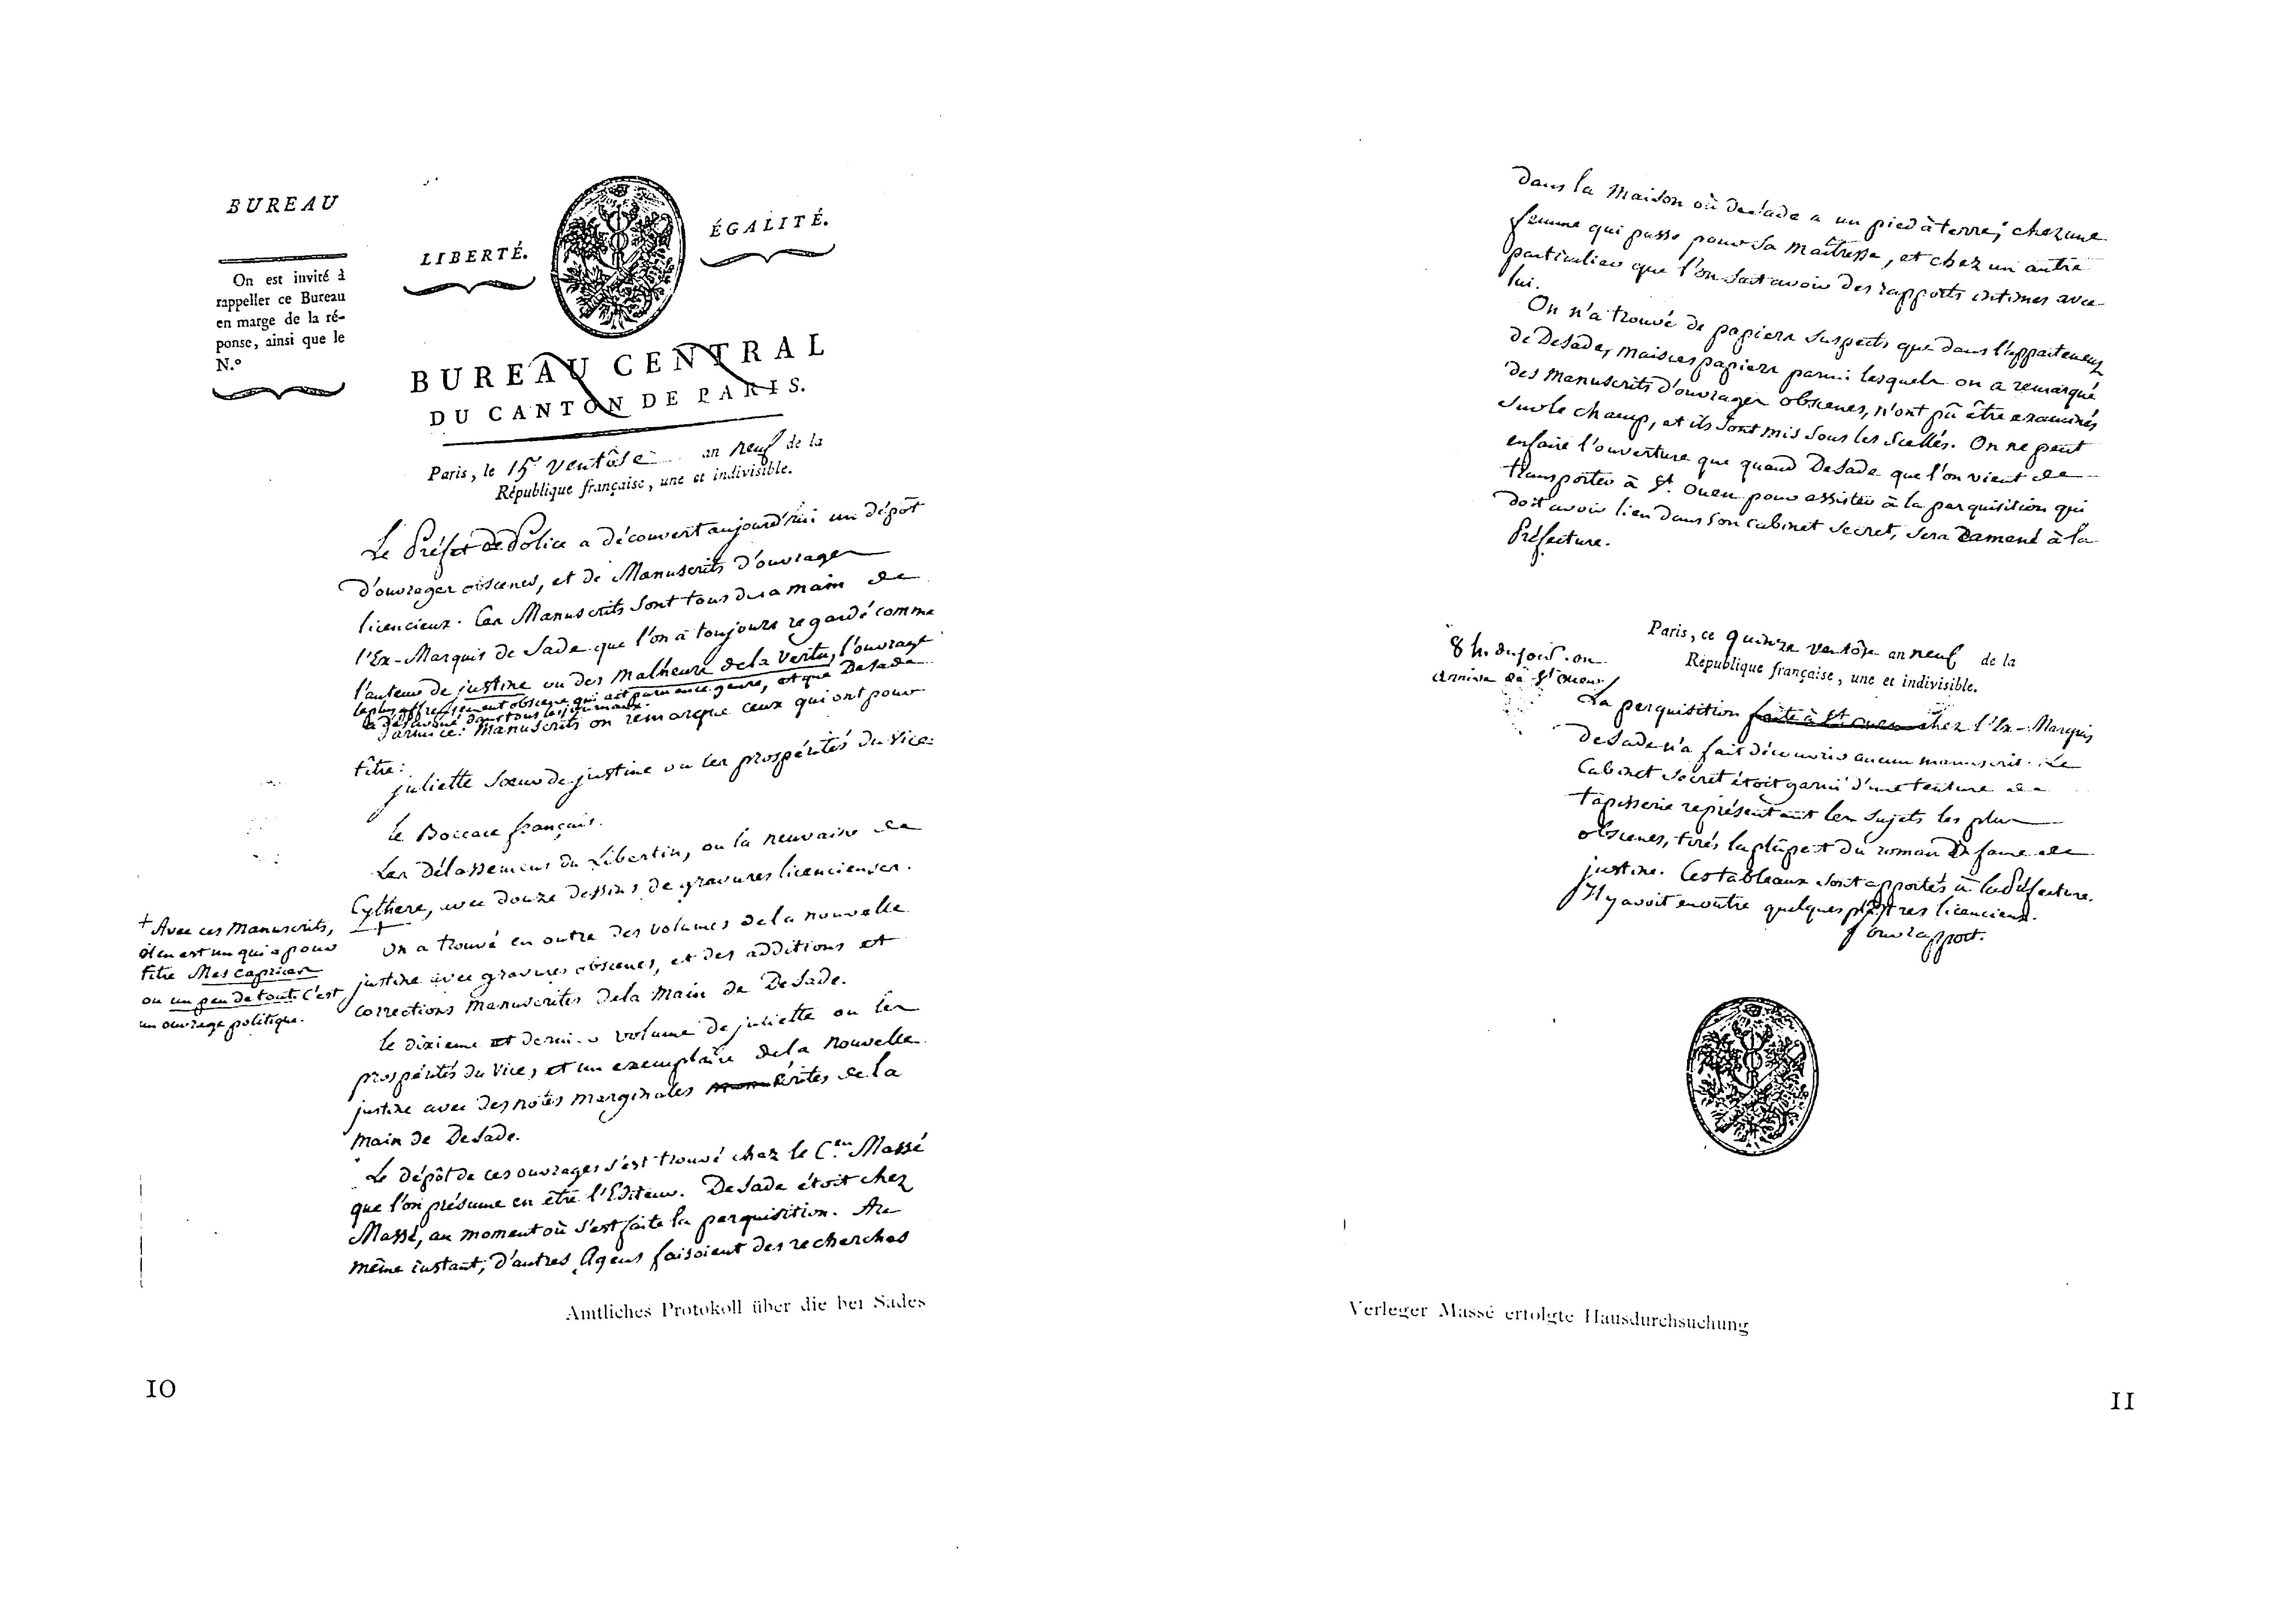 BUREAU
On est invité à
rappeller ce Bureau
en marge de la ré-
ponse, ainsi que le
N.º
LIBERTÉ.
ÉGALITÉ.
BUREAU CENTRAL
DU CANTON DE PARIS.
Paris, le 15 ventôse an neuf de la
République française, une et indivisible.
Le Préfet de Police a découvert aujourd'hui un dépôt
d'ouvrages obscenes, et de Manuscrits d'ouvrages
licencieux. Ces Manuscrits sont tous de la main de
l'Ex-Marquis de Sade que l'on a toujours regardé comme
l'auteur de justine ou des Malheurs de la Vertu, l'ouvrage
le plus affreusement obscene qui ait paru en ce genre, et que DeSade
a désavoué dans tous les journaux.
Parmi ces Manuscrits on remarque ceux qui ont pour
titre:
juliette sœur de justine ou les prospérités du Vice.
le Boccace français.
Les Délassemens du Libertin, ou la neuvaine de
Cythere, avec douze dessins de gravures licencieuses.
+
On a trouvé en outre des volumes de la nouvelle
justine avec gravures obscenes, et des additions et
corrections manuscrites de la Main de DeSade.
le dixieme et dernier volume de juliette ou les
prospérités du Vice, et un exemplaire de la nouvelle
justine avec des notes marginales écrites de la
main de DeSade.
Le dépôt de ces ouvrages s'est trouvé chez le C.en Massé
que l'on présume en être l'Editeur. DeSade étoit chez
Massé, au moment où s'est faite la perquisition. Au
même instant, d'autres Agens faisoient des recherches
+ Avec ces Manuscrits,
il en est un qui a pour
titre Mes caprices
ou un peu de tout. C'est
un ouvrage politique.
Amtliches Protokoll über die bei Sades
10
dans la maison où deSade a un pied à terre, chez une
femme qui passe pour sa maîtresse, et chez un autre
particulier que l'on sait avoir des rapports intimes avec
lui.
On n'a trouvé de papiers suspects que dans l'appartement
de DeSade, mais ces papiers parmi lesquels on a remarqué
des manuscrits d'ouvrages obscenes, n'ont pû être examinés
sur le champ, et ils sont mis sous les scellés. On ne peut
en faire l'ouverture que quand DeSade que l'on vient de
transporter à St. Ouen pour assister à la perquisition qui
doit avoir lieu dans son cabinet secret, sera ramené à la
Préfecture.
Paris, ce quinze ventôse an neuf de la
République française, une et indivisible.
8 h. du soir. on
arrive de St Ouen.
La perquisition faite à St ouen chez l'Ex-Marquis
deSade n'a fait découvrir aucun manuscrit. Le
Cabinet secret étoit garni d'une tenture de
tapisserie représentant les sujets les plus
obscenes, tirés la plûpart du roman infame de
justine. Ces tableaux sont apportés à la Préfecture.
Il y avoit en outre quelques plâtres licencieux.
Pour rapport.
Verleger Massé erfolgte Hausdurchsuchung
11